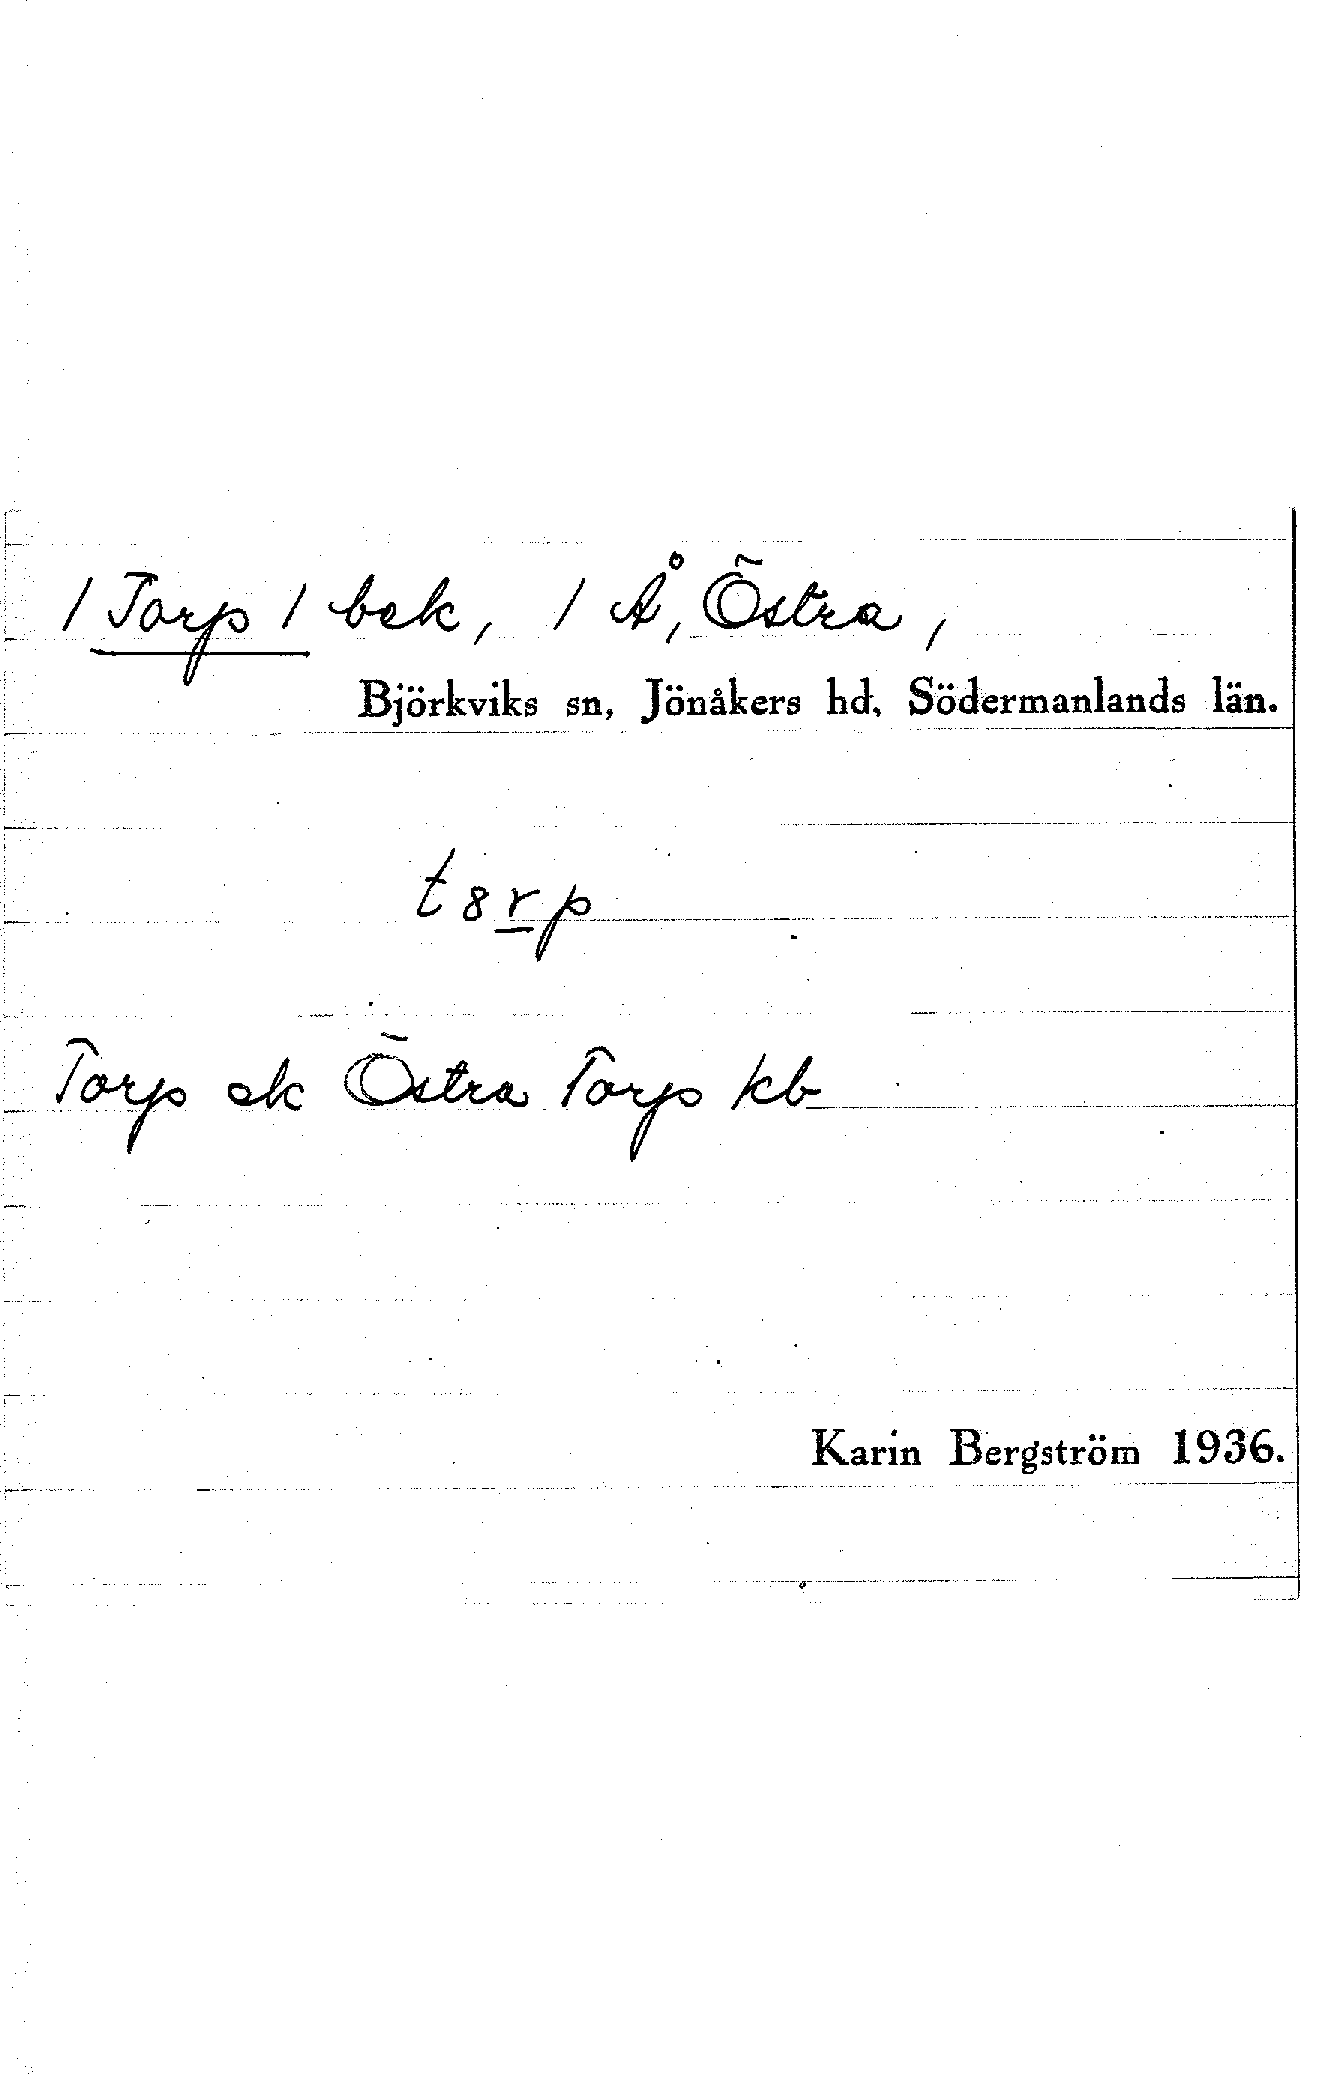 / Torp / bek, / Å, Östra,
Björkviks sn, Jönåkers hd, Södermanlands län.
t8rp
Torp ek Östra Torp kb
Karin Bergström 1936.